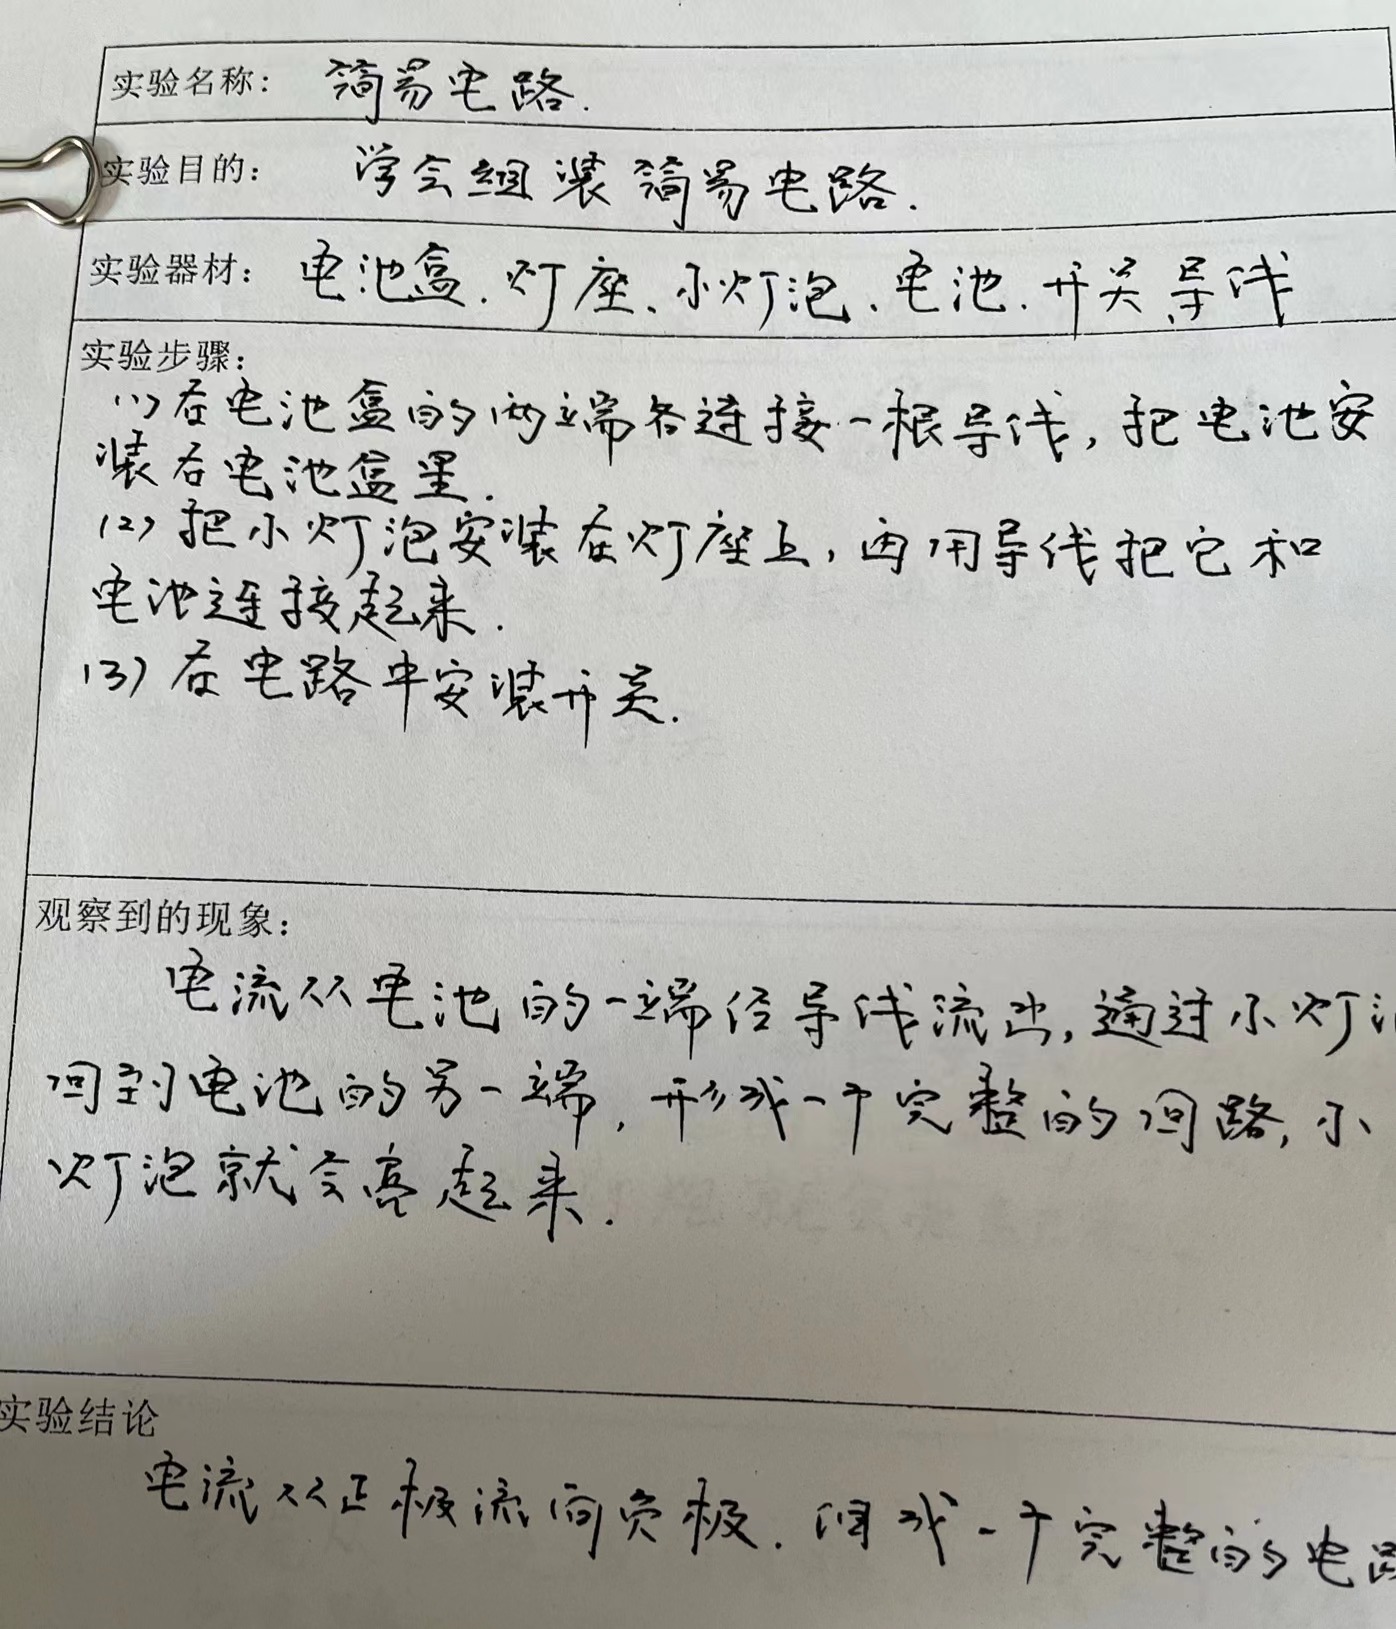 实验名称：简易电路.
实验目的：学会组装简易电路.
实验器材：电池盒.灯座、小灯泡、电池.开关.导线
实验步骤：
(1)在电池盒的两端各连接一根导线,把电池安
装在电池盒里.
(2)把小灯泡安装在灯座上,再用导线把它和
电池连接起来.
(3)在电路中安装开关.
观察到的现象：
电流从电池的一端经导线流出,通过小灯
回到电池的另一端,形成一个完整的回路,小
灯泡就会亮起来.
实验结论
电流从正极流向负极.组成一个完整的电